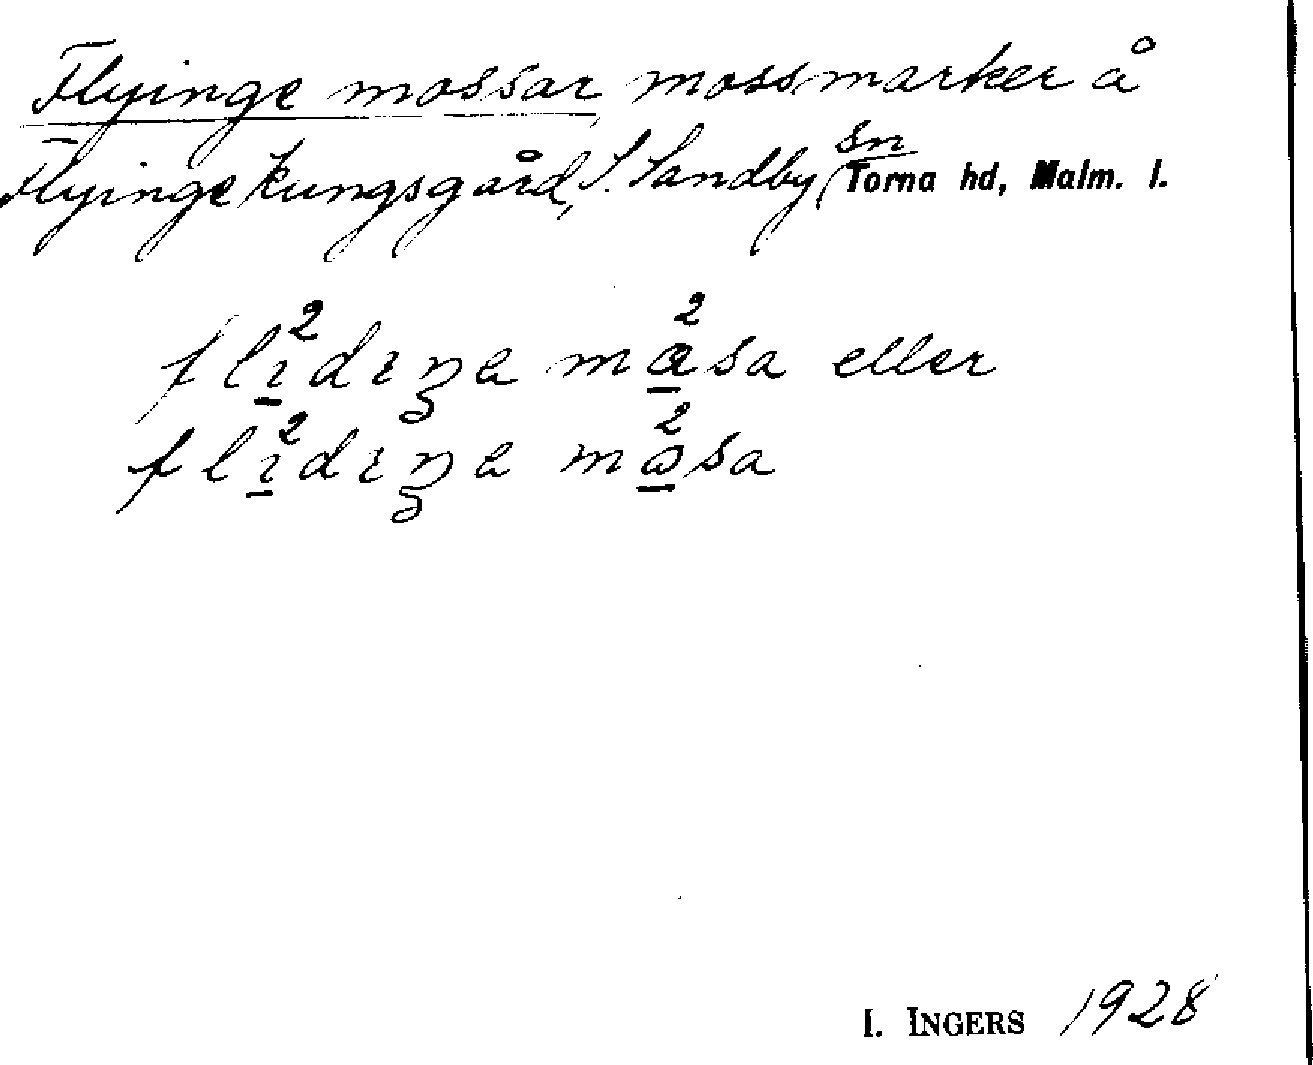 Flyinge mossar, mossmarker å
Flyinge kungsgård, S. Sandby sn Torna hd, Malm. l.
flı²dıŋa mæ²sa eller
flı²dıŋa mɷ²sa
I. INGERS 1928